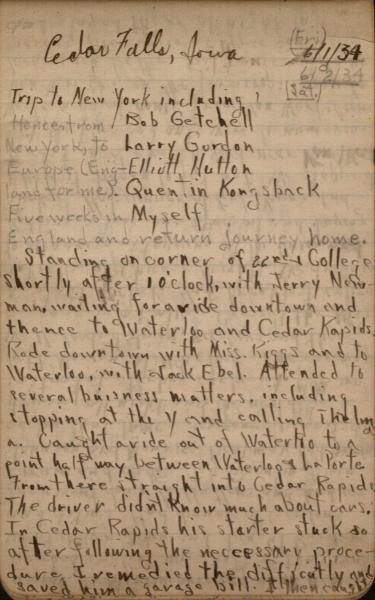 Cedar Falls, Iowa
(Fri)
6/1/34
6/2/34
(Sat.)
Trip to New York including:
Hence from Bob Getchell
New York, to Larry Gordon
Europe (Eng- Elliott Hutton
land for me). Quentin Kongsback
Five weeks in Myself
England and return journey home.
Standing on corner of 22nd & College
shortly after 1 o'clock, with Jerry New-
man, waiting for a ride downtown and
thence to Waterloo and Cedar Rapids.
Rode downtown with Miss. Riggs and to
Waterloo, with Jack Ebel. Attended to
several buisness matters, including
stopping at the Y and calling Thelm
a. Caught a ride out of Waterloo to a
point half way between Waterloo & LaPorte
From there straight into Cedar Rapids
The driver didn't know much about cars.
In Cedar Rapids his starter stuck so
after following the neccessary proce-
dure I remedied the difficutly and
saved him a garage bill. I then caught